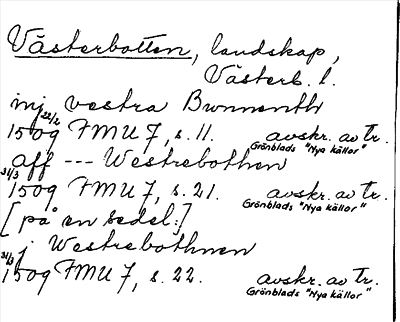 Västerbotten, landskap,
Västerb. l.
inj vestra Bwnnenth
22/2 1509 FMU 7, s. 11. avskr. av tr.
Grönblads "Nya källor"
aff --- Westrebothen
31/3 1509 FMU 7, s. 21. avskr. av tr.
Grönblads "Nya källor"
[på en sedel:]
j Westrebothnen
31/3 1509 FMU 7, s. 22. avskr. av tr.
Grönblads "Nya källor"